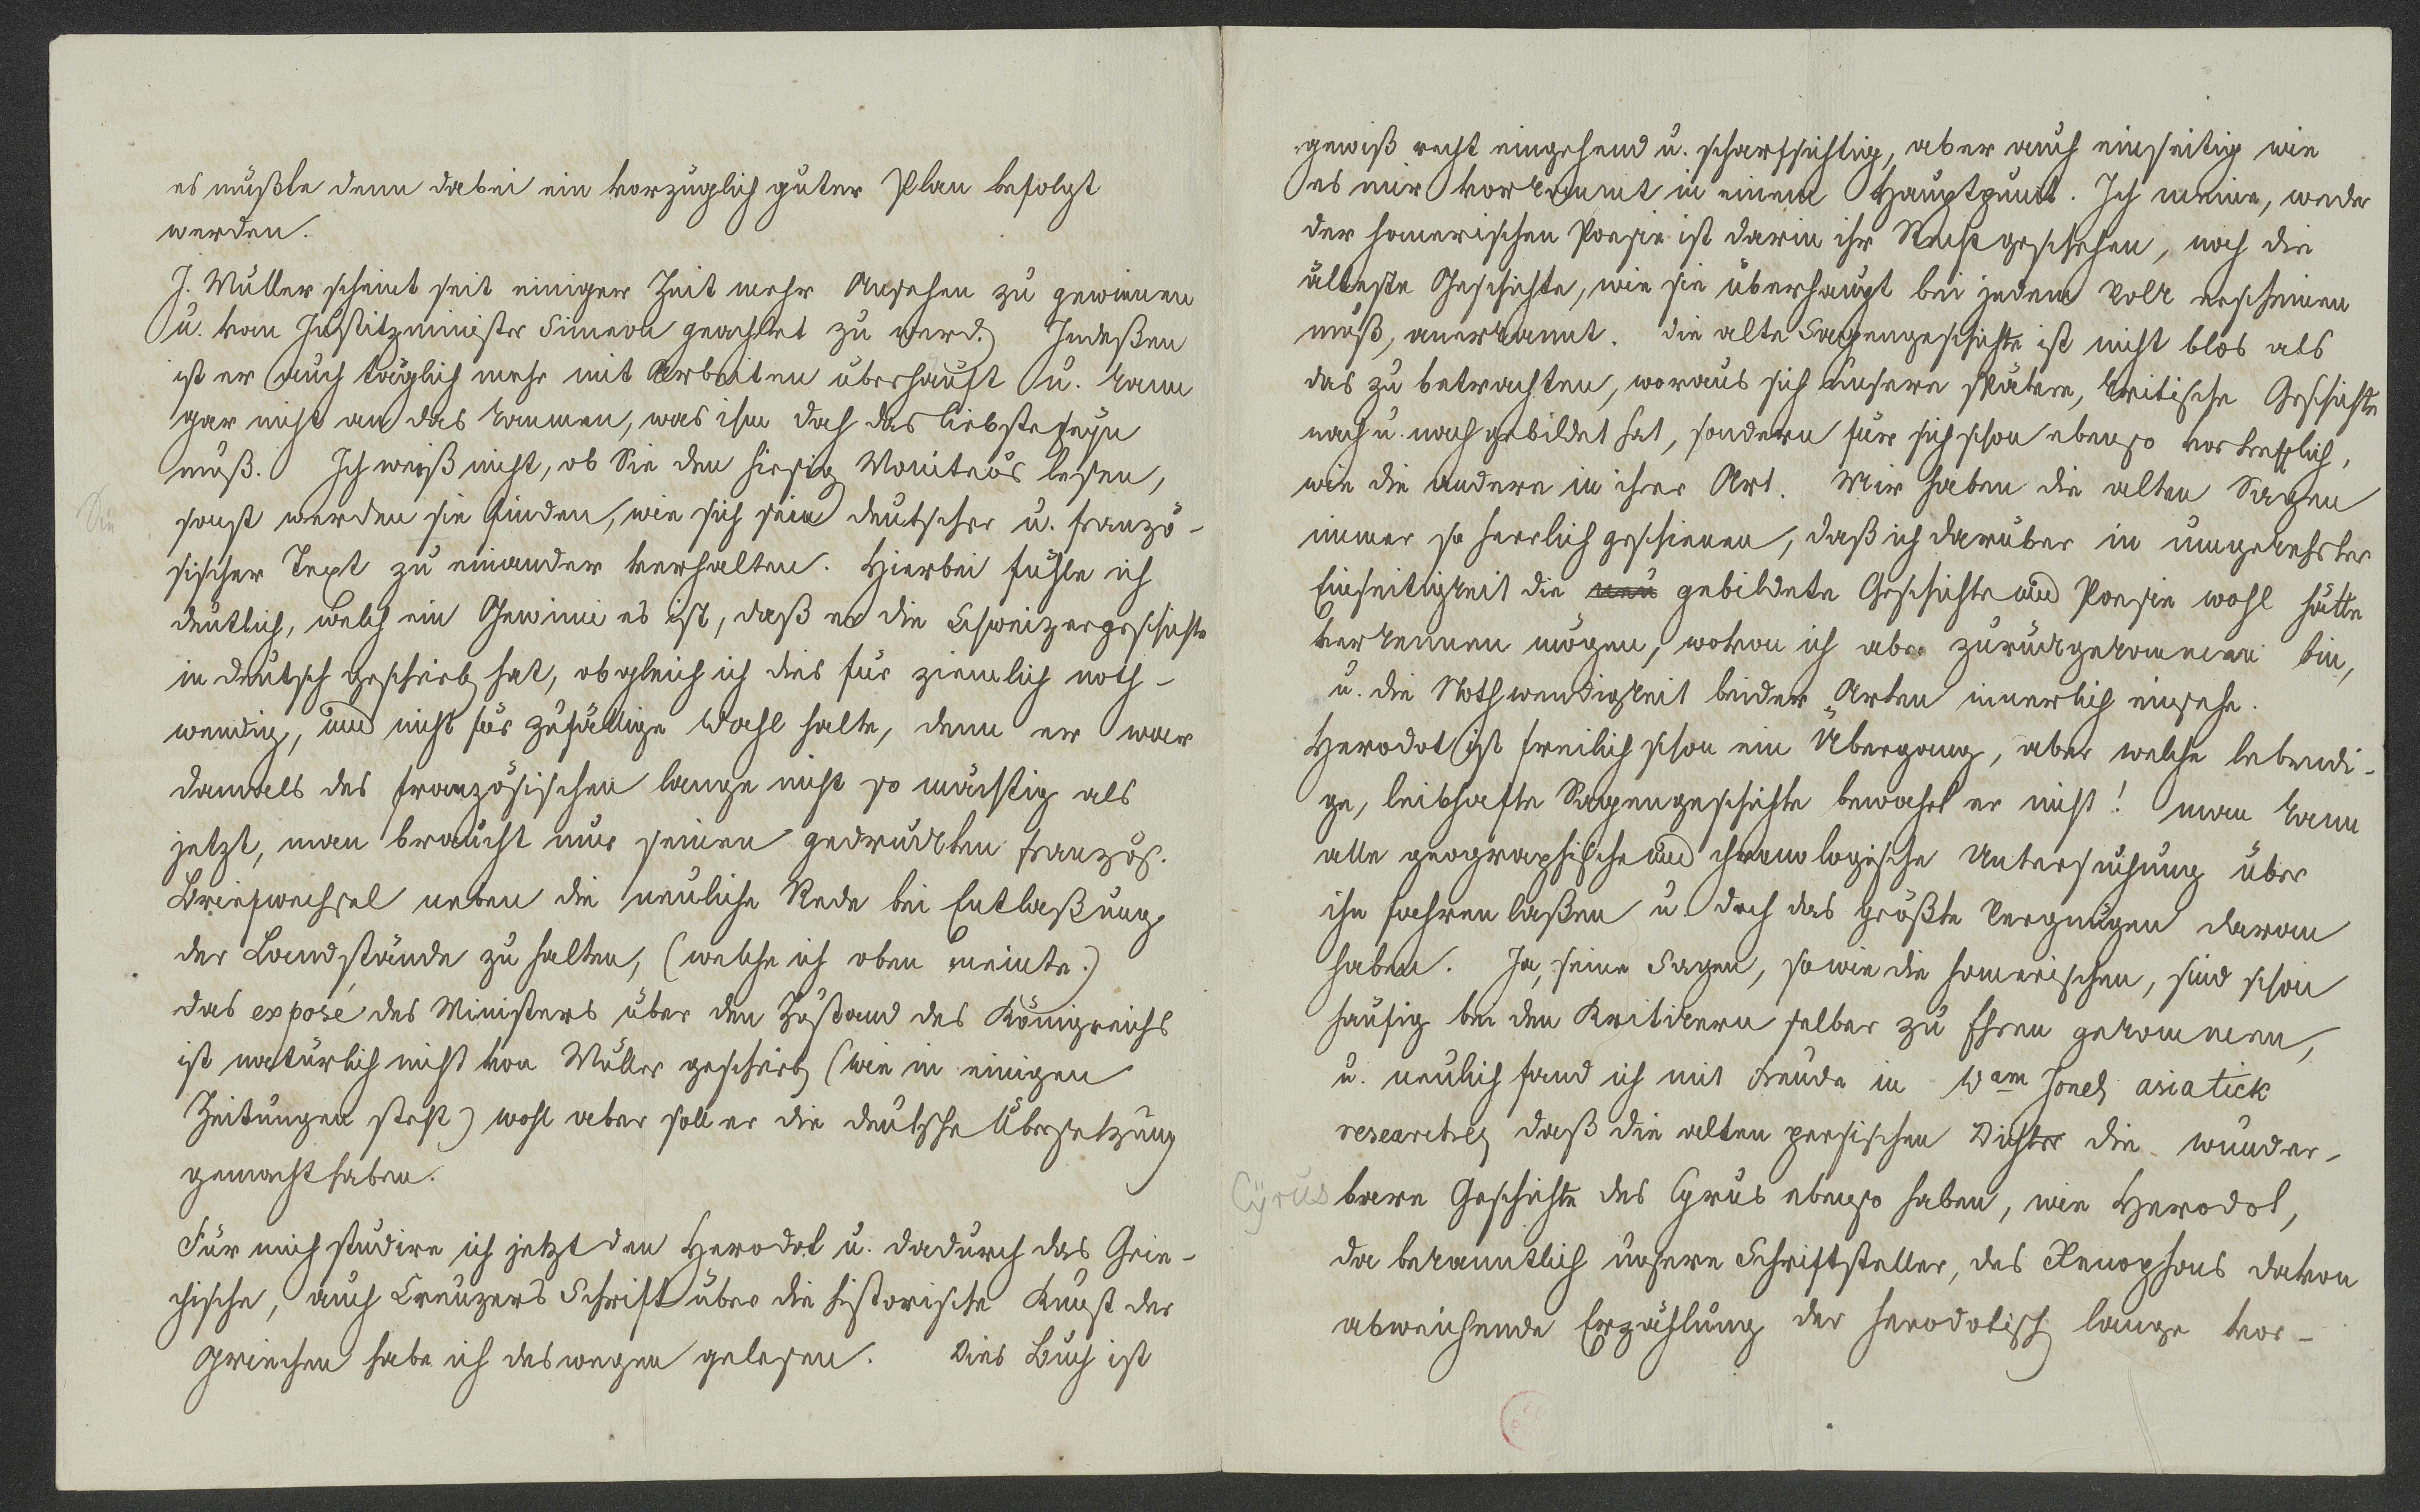 es müßte denn dabei ein vorzüglich guter Plan befolgt
werden.
J. Müller scheint seit einiger Zeit mehr Ansehen zu gewinnen
u. vom Justitzminister Simeon geachtet zu werd. Indeßen
ist er auch täglich mehr mit Arbeiten überhäuft u. kann
gar nicht an das kommen, was ihm doch das liebste seyn
muß. Ich weiß nicht, ob Sie den hiesig Moniteur lesen,
Sie
sonst werden sie finden, wie sich sein deutscher u. franzö-
sischer Text zu einander verhalten. Hierbei fühle ich
deutlich, welch ein Gewinn es ist, daß er die Schweizergeschichte
in deutsch geschrieb hat, obgleich ich dies für ziemlich noth-
wendig, und nicht für zufällige Wahl halte, denn er war
damals des französischen lange nicht so mächtig als
jetzt, man braucht nur seinen gedruckten französ.
Briefwechsel neben die neuliche Rede bei Entlaßung
der Landstände zu halten, (welche ich oben meinte.)
das exposé des Ministers über den Zustand des Königreichs
ist natürlich nicht von Müller geschrieb (wie in einigen
Zeitungen steht) wohl aber soll er die deutsche Übersetzung
gemacht haben.
Für mich studire ich jetzt den Herodot u. dadurch das Grie-
chische, auch Creuzers Schrift über die historische Kunst der
Griechen habe ich deswegen gelesen. Dies Buch ist
gewiß recht eingehend u. scharfsichtig, aber auch einseitig wie
es mir vorkommt in einem Hauptpunct. Ich meine, weder
der homerischen Poesie ist darin ihr Recht geschehen, noch die
älteste Geschichte, wie sie überhaupt bei jedem Volk erscheinen
muß, anerkannt. die alte Sagengeschichte ist nicht blos als
das zu betrachten, woraus sich unsere spätere, kritische Geschichte
nach u. nach gebildet hat, sondern für sich schon ebenso vortrefflich,
wie die andere in ihrer Art. Mir haben die alten Sagen
immer so herrlich geschienen, daß ich darüber in umgekehrter
Einseitigkeit die neu gebildete Geschichte und Poesie wohl hätte
verkennen mögen, wovon ich aber zurückgekommen bin,
u. die Nothwendigkeit beider Arten innerlich einsehe.
Herodot ist freilich schon ein Übergang, aber welche lebendi-
ge, leibhafte Sagengeschichte bewahrt er nicht! man kann
alle geographische und chronologische Untersuchung über
ihn fahren laßen u. doch das größte Vergnügen daran
haben. Ja, seine Sagen, so wie die homerischen, sind schon
häufig bei den Kritikern selber zu Ehren gekommen,
u. neulich fand ich mit Freude in Wam Jones asiatick
researches daß die alten persischen Dichter die wunder-
Cyrus
bare Geschichte des Cyrus ebenso haben, wie Herodot,
da bekanntlich unsere Schriftsteller, des Xenophons davon
abweichende Erzählung der herodotisch lange vor-